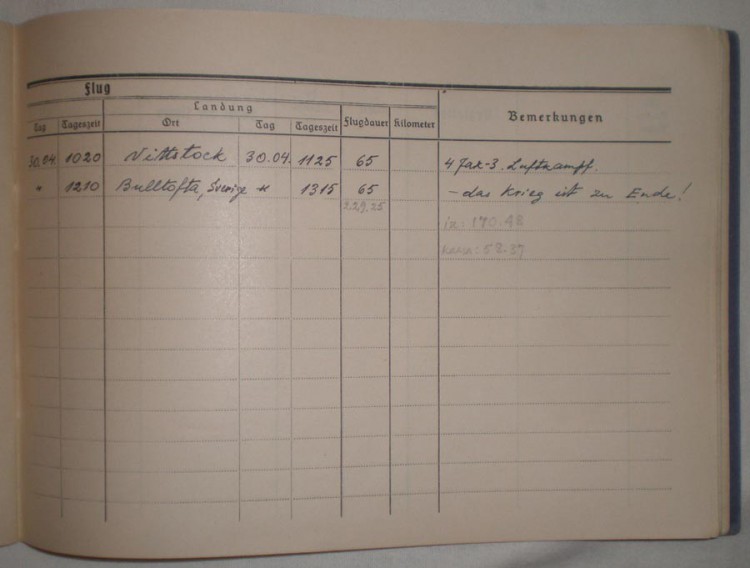 Flug
Landung
Tag Tageszeit Ort Tag Tageszeit Flugdauer Kilometer Bemerkungen
30.04. 1020 Vittstock 30.04. 1125 65 4 Jak-3. Luftkampf.
" 1210 Bulltofta, Sverige " 1315 65 - das Krieg ist zu Ende!
229,25
iz: 170.48
58.37